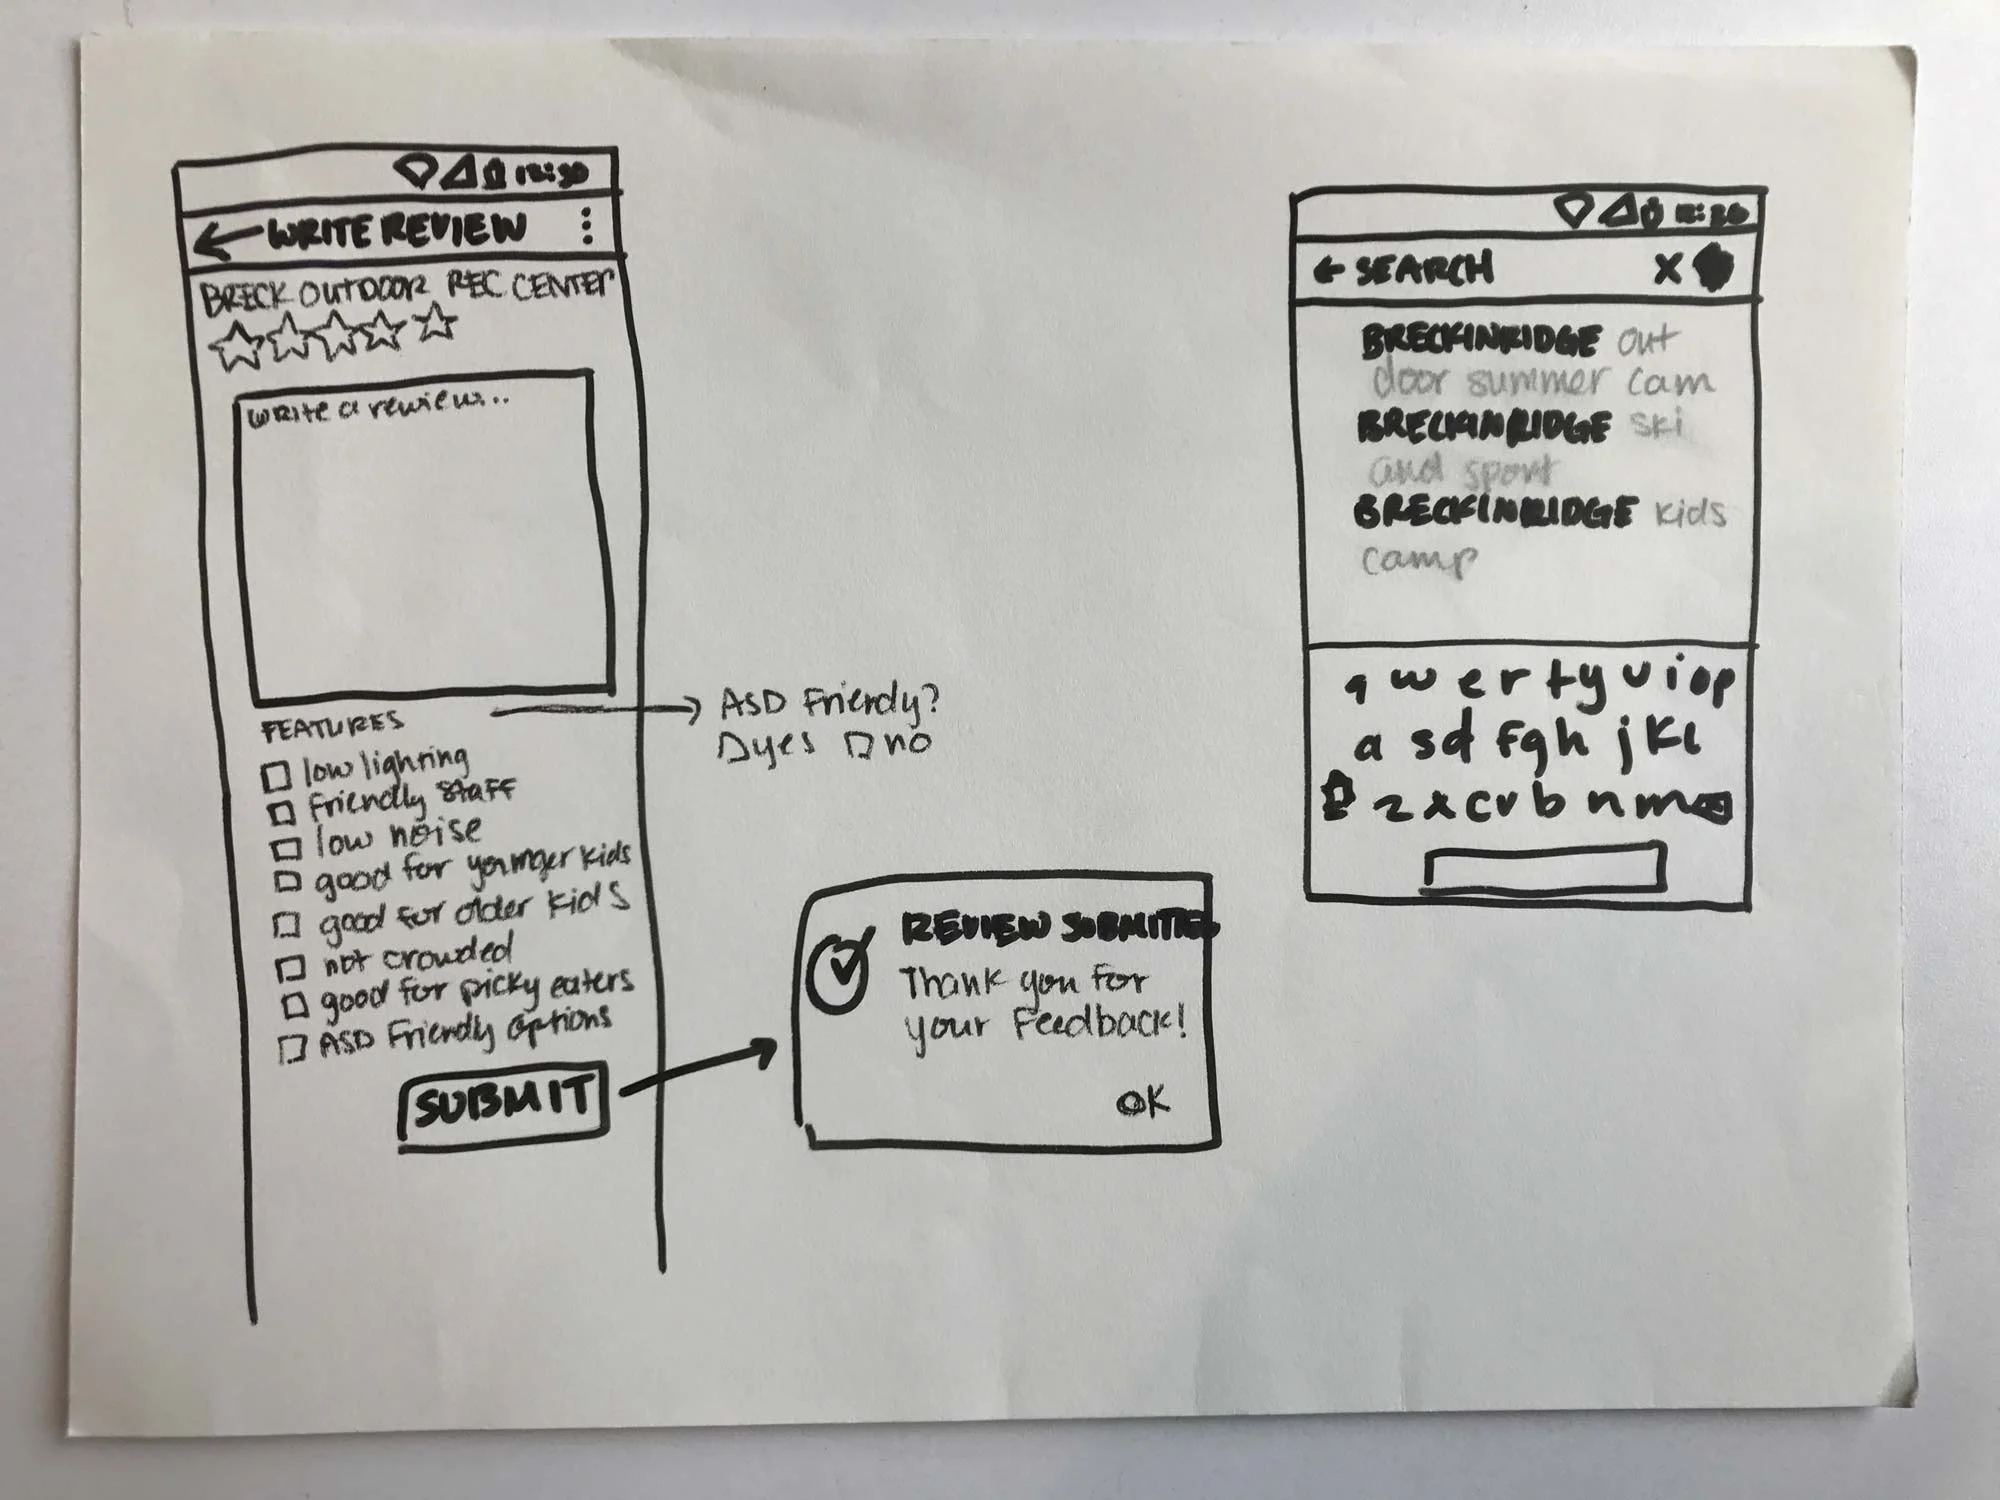 12:30
WRITE REVIEW
BRECK OUTDOOR REC CENTER
write a review...
FEATURES
low lighting
friendly staff
low noise
good for younger kids
good for older kids
not crowded
good for picky eaters
ASD Friendly options
SUBMIT
ASD Friendly?
yes no
REVIEW SUBMITTED
Thank you for
your Feedback!
OK
12:30
SEARCH X
BRECKINRIDGE out
door summer cam
BRECKINRIDGE ski
and sport
BRECKINRIDGE kids
camp
q w e r t y u i o p
a s d f g h j k l
z x c v b n m